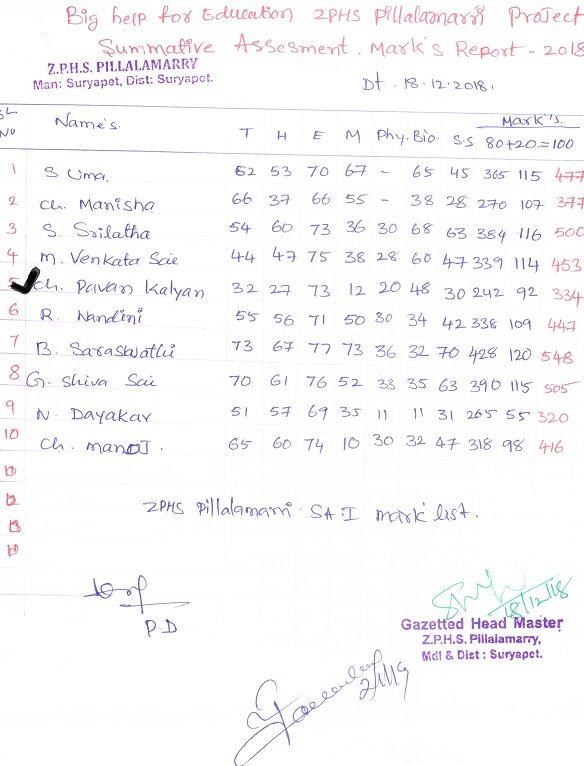 Big help for Education ZPHS Pillalamarri Project
Summative Assesment. Mark's Report - 2018
Z.P.H.S. PILLALAMARRY
Man: Suryapet, Dist: Suryapet.
Dt. 18.12.2018.
SL NO Name's. T H E M Phy. Bio. S.S Mark's. 80+20=100
1 S. Uma. 62 53 70 67 - 65 45 365 115 477
2 Ch. Manisha 66 37 66 55 - 38 28 270 107 377
3 S. Srilatha 54 60 73 36 30 68 63 384 116 500
4 M. Venkata Sai 44 47 75 38 28 60 47 339 114 453
5 Ch. Pavan Kalyan 32 27 73 12 20 48 30 242 92 334
6 R. Nandini 55 56 71 50 30 34 42 338 109 447
7 B. Saraswathi 73 67 77 73 36 32 70 428 120 548
8 G. Shiva Sai 70 61 76 52 33 35 63 390 115 505
9 N. Dayakar 51 57 69 35 11 11 31 265 55 320
10 Ch. manoJ. 65 60 74 10 30 32 47 318 98 416
11
12
13
14
ZPHS Pillalamarri SA I mark list.
P.D
18/12/18
Gazetted Head Master
Z.P.H.S. Pillalamarry,
Mdl & Dist : Suryapet.